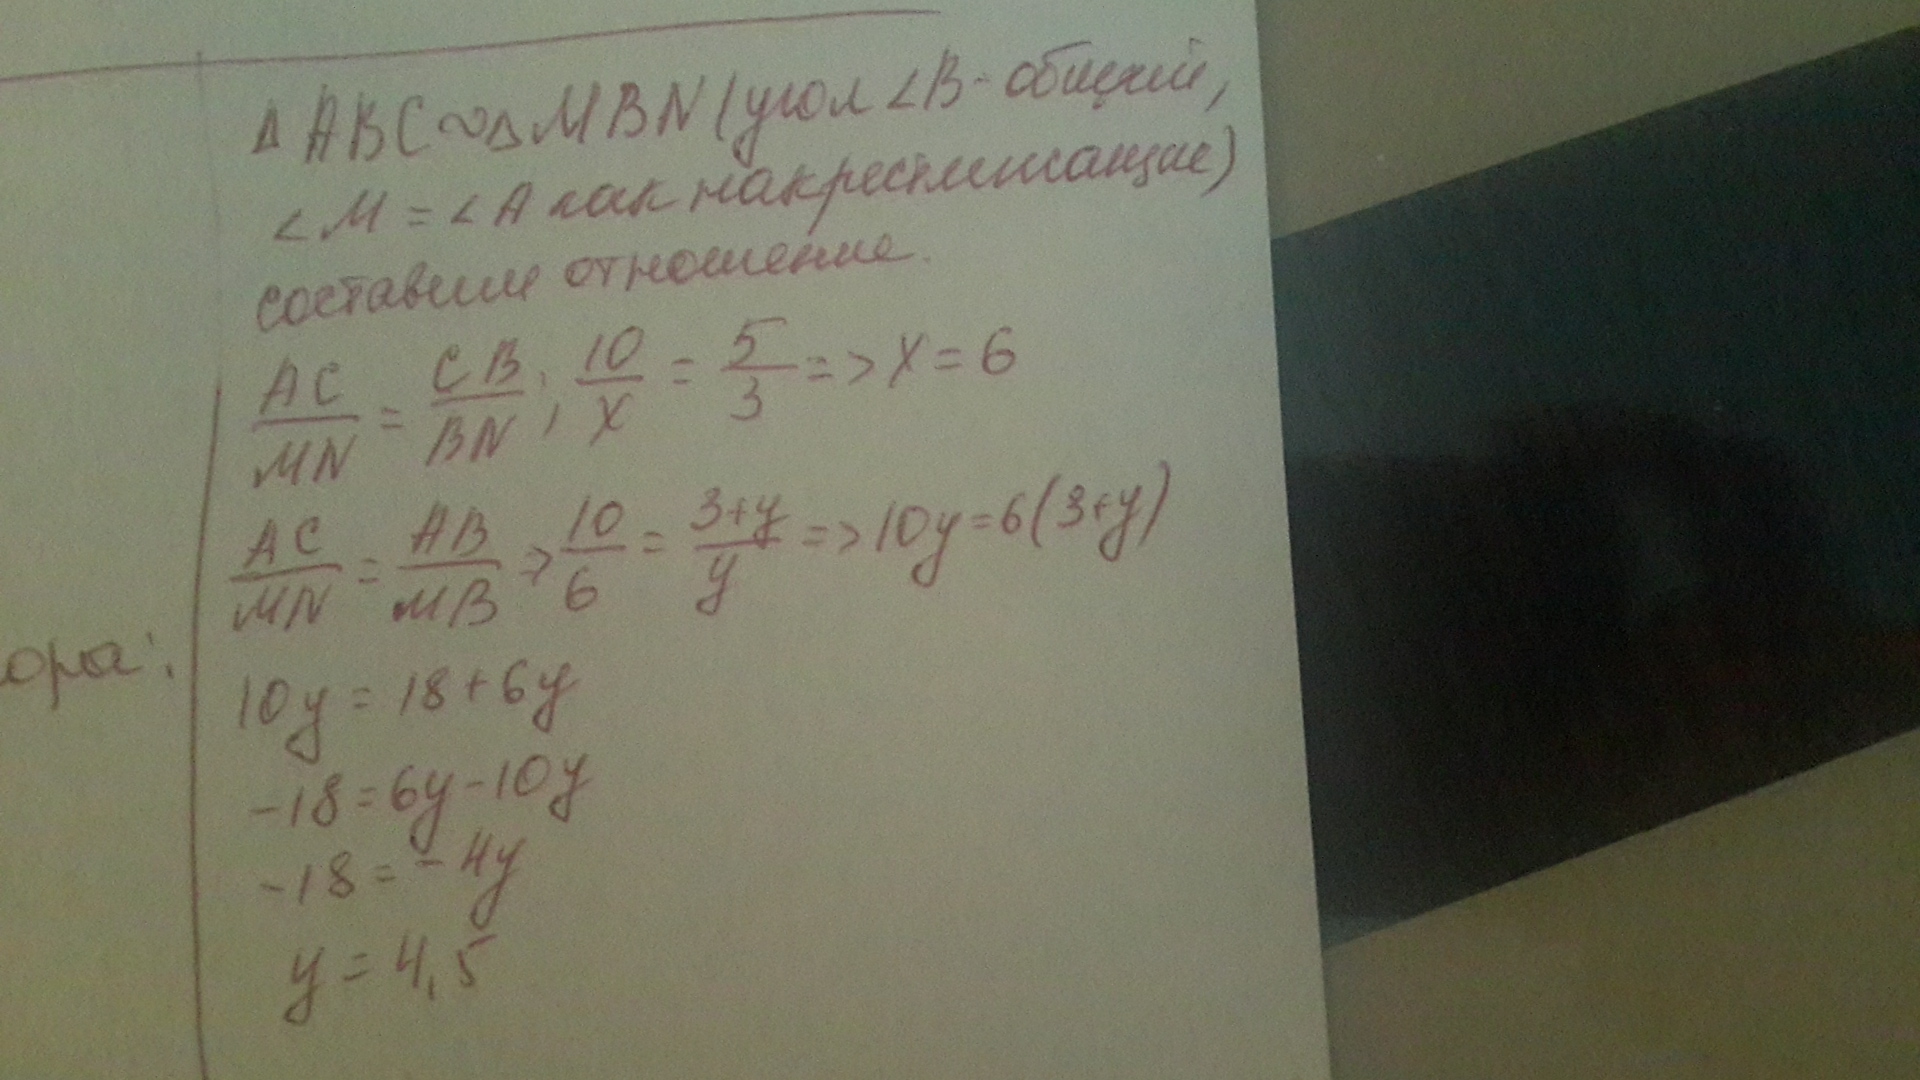 Δ ABC ∾ Δ MBN (угол ∠B - общий,
∠M = ∠A как накрестлежащие)
составим отношение.
AC/MN = CB/BN; 10/x = 5/3 => x = 6
AC/MN = AB/MB => 10/6 = 3+y/y => 10y = 6(3+y)
ора:
10y = 18 + 6y
-18 = 6y - 10y
-18 = -4y
y = 4,5